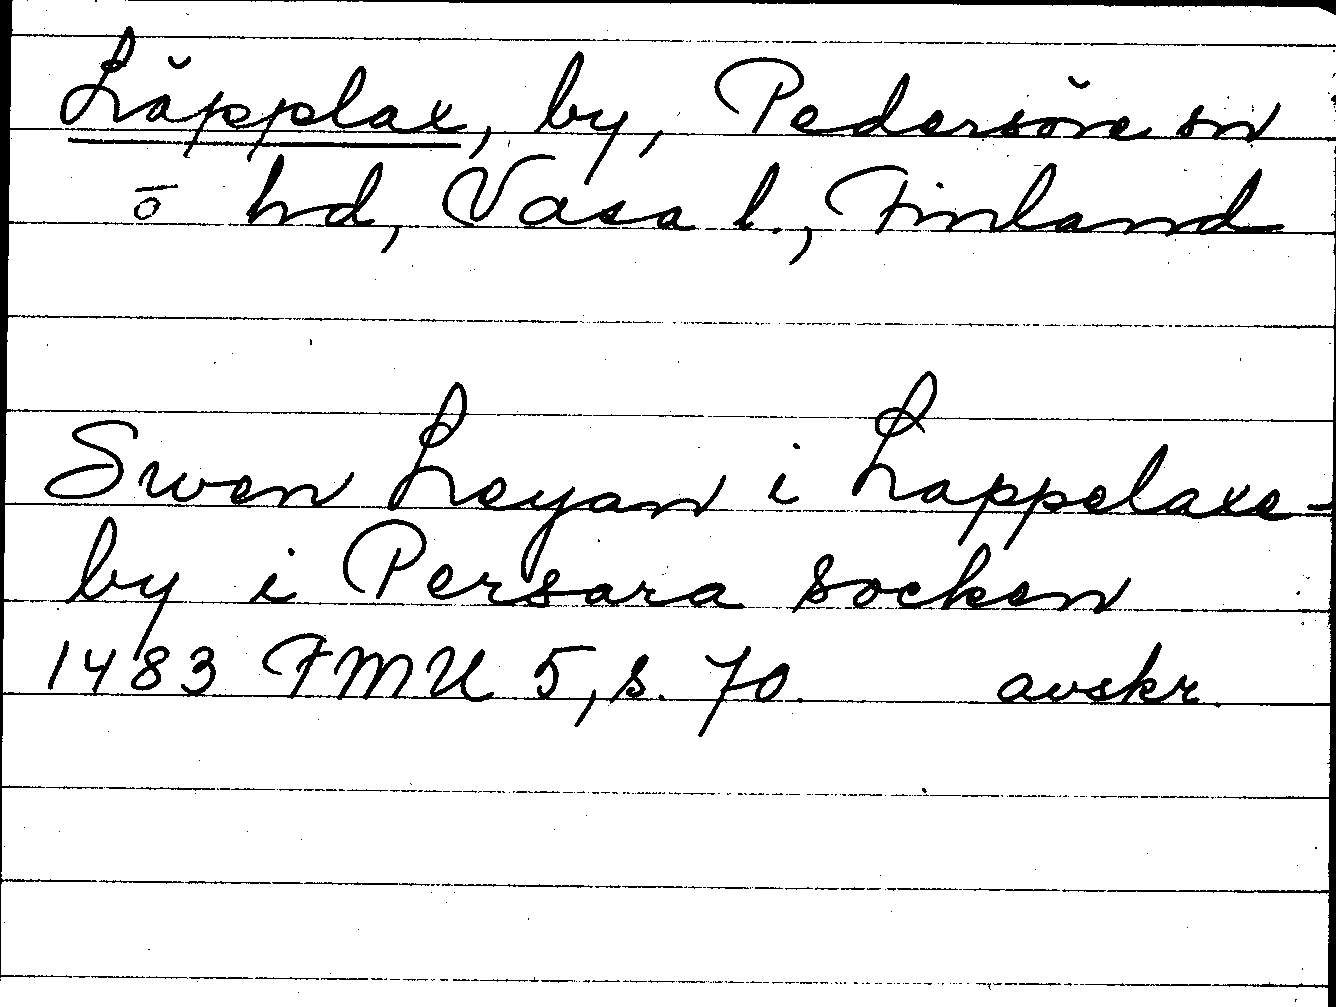 Läpplax, by, Pedersöre sn
ō hd, Vasa l., Finland
Swen Leyan i Lappelaxe-
by i Persara socken
1483 FMU 5, s. 70. avskr.